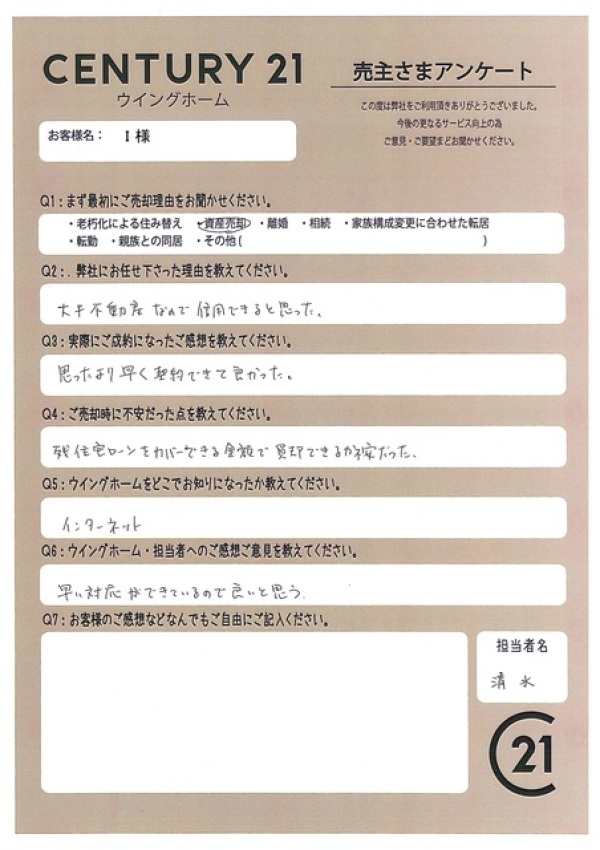 CENTURY 21
ウイングホーム
売主さまアンケート
この度は弊社をご利用頂きありがとうございました。
今後の更なるサービス向上の為
ご意見・ご要望まどお聞かせください。
お客様名： I 様
Q1：まず最初にご売却理由をお聞かせください。
・老朽化による住み替え ・資産売却 ・離婚 ・相続 ・家族構成変更に合わせた転居
・転勤 ・親族との同居 ・その他( )
Q2：．弊社にお任せ下さった理由を教えてください。
大手不動産なので信用できると思った。
Q3：実際にご成約になったご感想を教えてください。
思ったより早く契約できて良かった。
Q4：ご売却時に不安だった点を教えてください。
残住宅ローンをカバーできる金額で売却できるか不安だった。
Q5：ウイングホームをどこでお知りになったか教えてください。
インターネット
Q6：ウイングホーム・担当者へのご感想ご意見を教えてください。
早い対応ができているので良いと思う
Q7：お客様のご感想などなんでもご自由にご記入ください。
担当者名
清水
C21